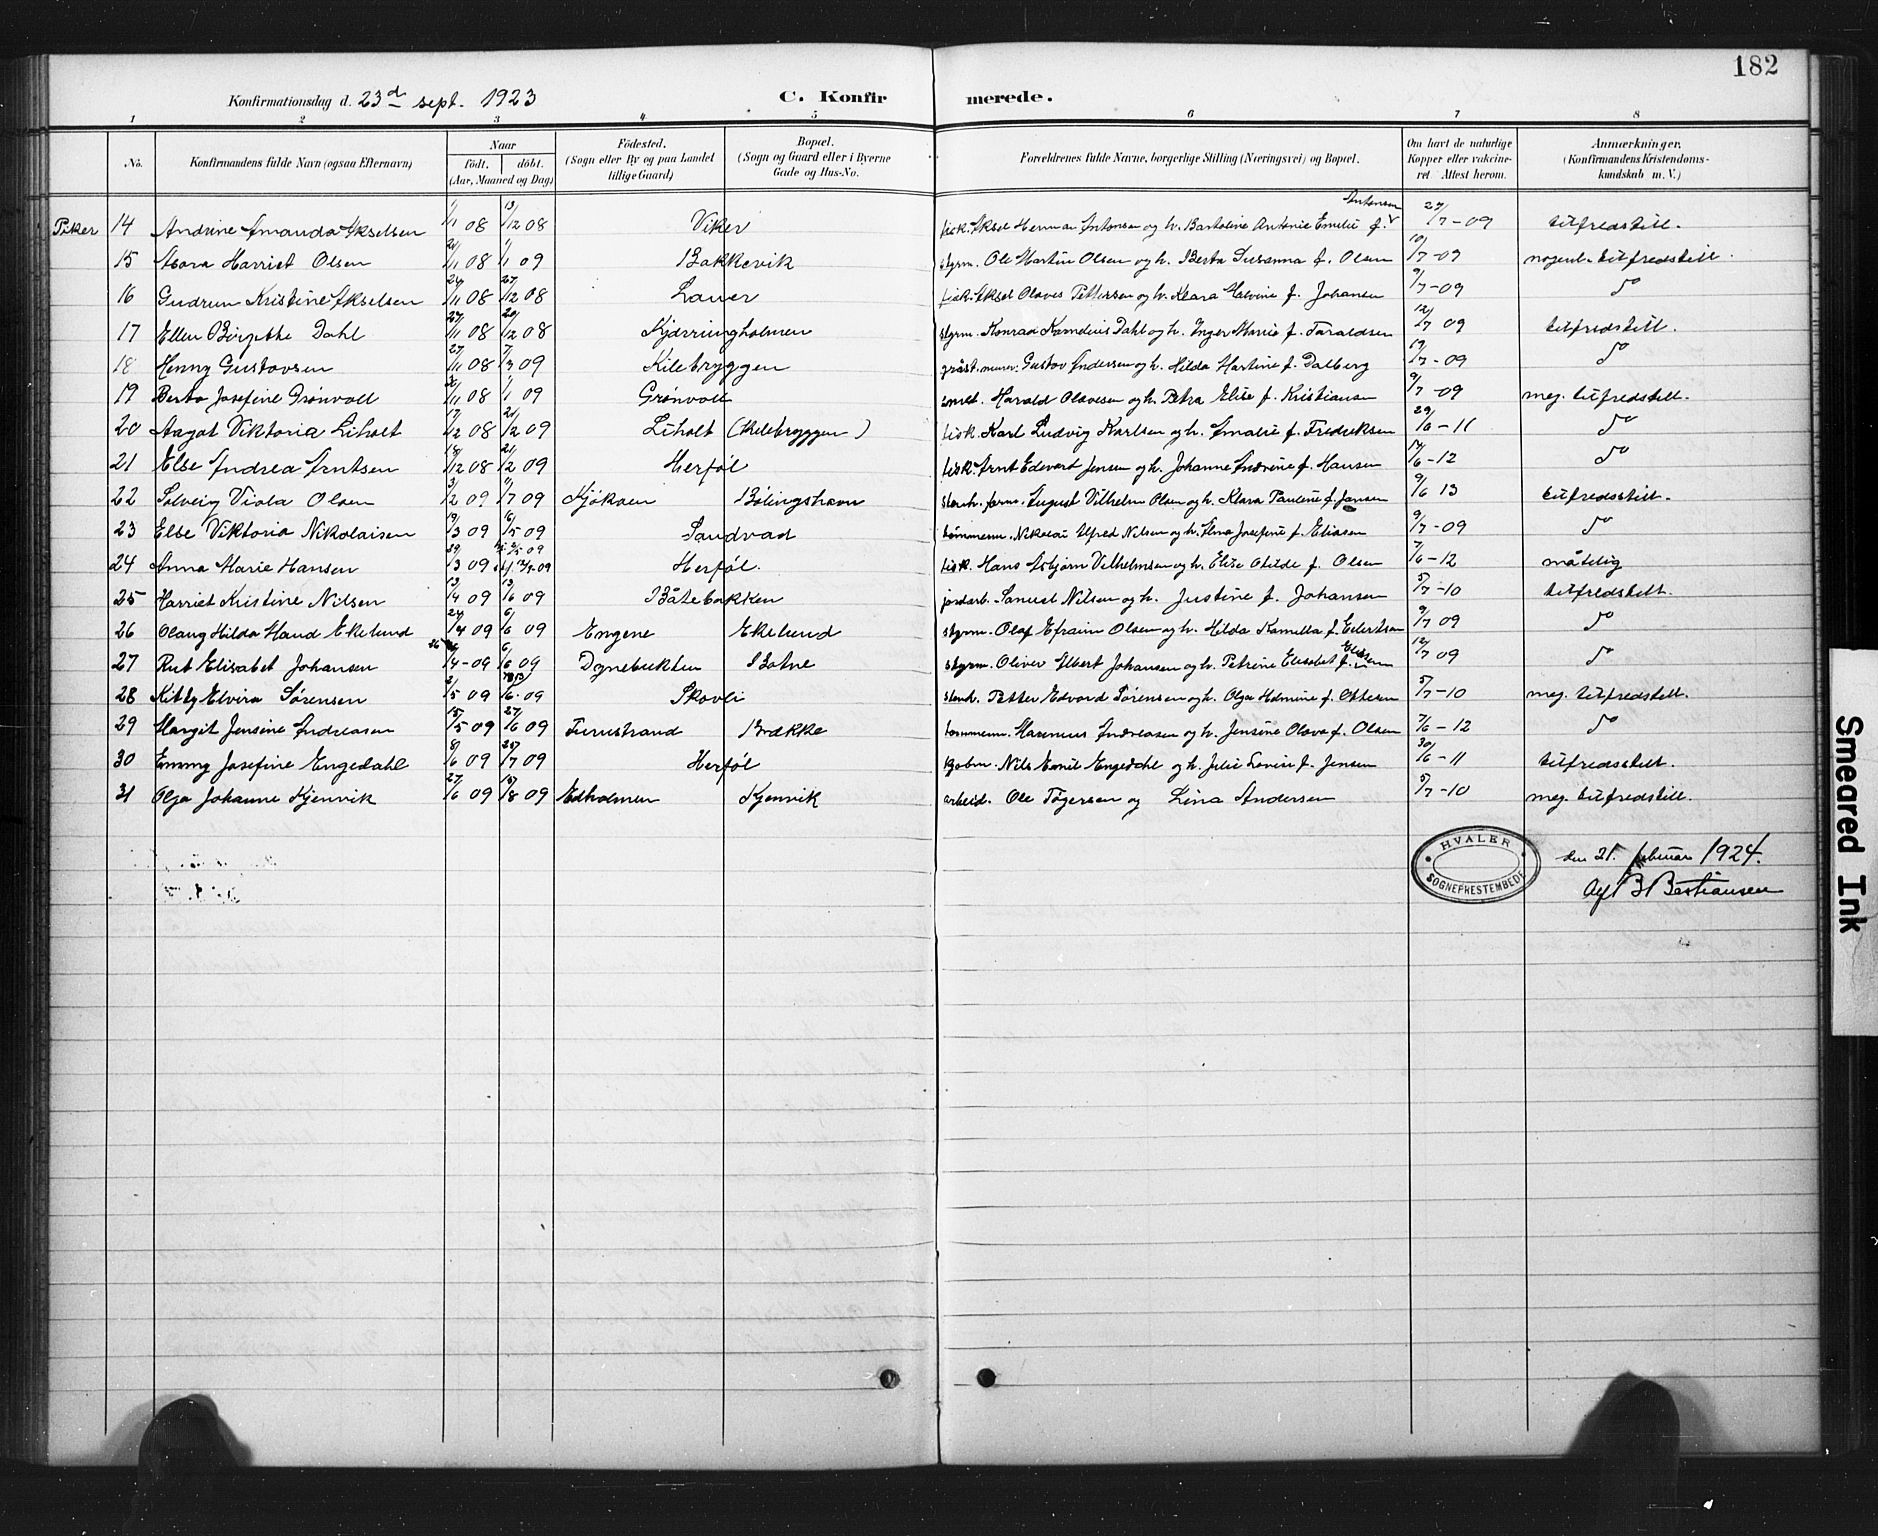 182
Konfirmationsdag d. 23d sept. 1923 C. Konfirmerede.
1 2 3 4 5 6 7 8
No. Konfirmandens fulde Navn (ogsaa Efternavn) Naar födt. döbt. (Aar, Maaned og Dag) Födested. (Sogn eller By og paa Landet tillige Gaard) Bopæl. (Sogn og Gaard eller i Byerne Gade og Hus-No. Forældrenes fulde Navne, borgerlige Stilling (Næringsvei) og Bopæl. Om havt de naturlige Kopper eller vakcineret Attest herom. Anmærkninger. (Konfirmandens Kristendomskundskab m. V.)
Piker 14 Andrine Amanda Akselsen 1/11 08 13/12 08 Viker fisk. Aksel Herman Antonsen og h. Bartoline Antonie Emilie f. Antonsen 27/7-09 tilfredstill.
15 Asora Harriet Olsen 21/11 08 1/1 09 Bakkevik styrm. Ole Martin Olsen og h. Berta Susanna f. Olsen 10/7-09 nogenl. tilfredstill.
16 Gudrun Kristine Akselsen 24/11 08 27/12 08 Lauer fisk. Aksel Olaves Pettersen og h. Klara Halvine f. Johansen 9/7-09 do
17 Ellen Birgitte Dahl 27/11 08 20/12 08 Kjærringholmen styrm. Konrad Kornelius Dahl og h. Inger Marie f. Taraldsen 12/7 09 tilfredstill.
18 Henny Gustavsen 27/11 08 7/3 09 Kilebryggen gråst. murer. Gustav Andersen og h. Hilda Martine f. Dalberg 19/7-09 do
19 Berta Josefine Grønvoll 30/11 08 1/1 09 Grønvoll smed. Harald Olavesen og h. Petra Elise f. Kristiansen 9/7-09 meg. tilfredstill.
20 Aagot Viktoria Liholt 17/12 08 21/2 09 Liholt (Kilebryggen) fisk. Karl Ludvig Karlsen og h. Amalie f. Fredriksen 29/6-11 do
21 Else Andrea Arntsen 18/12 08 21/2 09 Herføl fisk. Arnt Edevart Jensen og h. Johanne Andrine f. Hansen 17/6-12 do
22 Solveig Viola Olsen 3/2 09 11/7 09 Kjökøen Bölingshavn stenh. form. August Vilhelm Olsen og h. Klara Pauline f. Jansen 9/6 13 tilfredsstill.
23 Else Viktoria Nikolaisen 19/3 09 16/5 09 Sandvad tømmerm. Nikolai Alfred Nilsen og h. Alma Josefine f. Eliasen 9/7-09 do
24 Anna Marie Hansen 30/3 09 Herføl. fisk. Hans Asbjørn Vilhelmsen og h. Elise Otilde f. Olsen 7/6-12 måtelig
25 Harriet Kristine Nilsen 13/4 09 13/6 09 Båtebakken jordarb. Samuel Nilsen og h. Justine f. Johansen 5/7-10 tilfredstill.
26 Olaug Hilda Maud Ekelund 24/4 09 6/6 09 Engene Ekelund styrm. Olaf Efraim Olsen og h. Hilda Kamilla f. Eilertsen 9/7 09 do
27 Rut Elisabet Johansen 26/4-09 6/6 09 Dypebukten Botne styrm. Oliver Albert Johansen og h. Petrine Elisabet f. 12/7 09 do
28 Kitty Elvira Sørensen 2/5 09 13/6-09 Skovli stenh. Petter Edvard Sørensen og h. Olga Helmine f. Ottesen 5/7-10 meg. tilfredstill.
29 Margit Jensine Andreasen 15/5 09 27/6 09 Furustrand Brække tømmerm. Marenius Andreasen og h. Jensine Olava f. Olsen 7/6-12 do
30 Emmy Josefine Engedahl 8/6 09 25/7 09 Herføl kjøbm. Nils Emil Engedahl og h. Julie Lovise f. Jensen 30/6-11 tilfredsstill.
31 Olga Johanne Kjenvik 27/6 09 15/8 09 Edholmen Kjenvik arbeid. Ole Tøgersen og Lina Andersen 5/7-10 meg. tilfredstill.
HVALER SOGNEPRESTEMBEDE
den 21. februar 1924.
B. Bastiansen
Smeared Ink